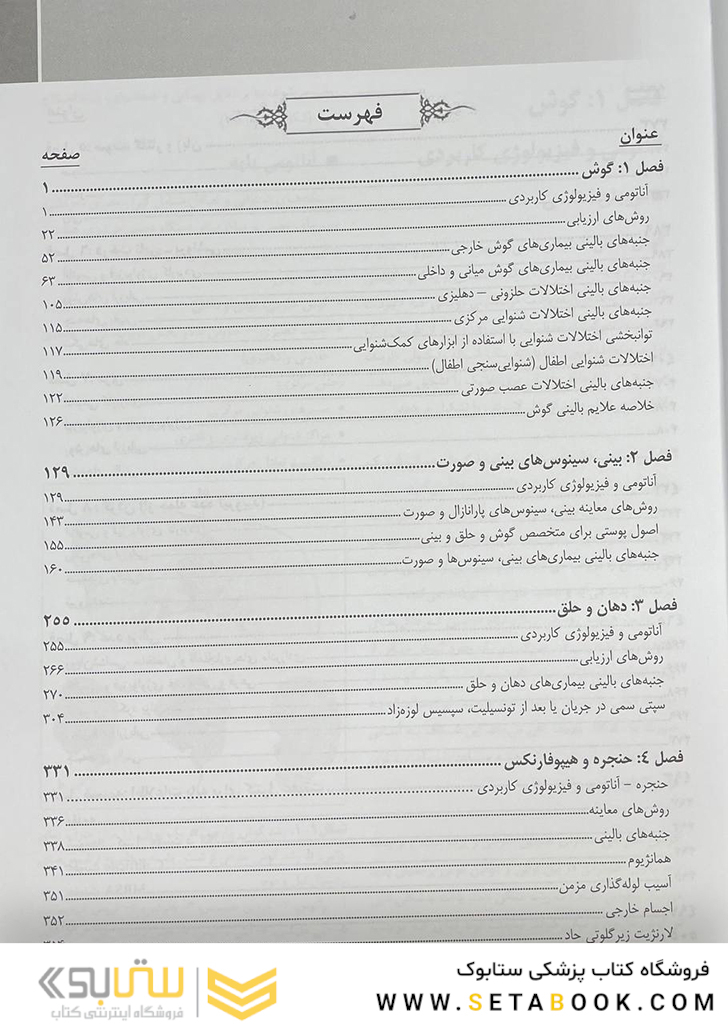 فهرست
عنوان
صفحه
فصل ۱: گوش ........ ۱
آناتومی و فیزیولوژی کاربردی ........ ۱
روش‌های ارزیابی ........ ۲۲
جنبه‌های بالینی بیماری‌های گوش خارجی ........ ۵۲
جنبه‌های بالینی بیماری‌های گوش میانی و داخلی ........ ۶۳
جنبه‌های بالینی اختلالات حلزونی – دهلیزی ........ ۱۰۵
جنبه‌های بالینی اختلالات شنوایی مرکزی ........ ۱۱۵
توانبخشی اختلالات شنوایی با استفاده از ابزارهای کمک‌شنوایی ........ ۱۱۷
اختلالات شنوایی اطفال (شنوایی‌سنجی اطفال) ........ ۱۱۹
جنبه‌های بالینی اختلالات عصب صورتی ........ ۱۲۲
خلاصه علایم بالینی گوش ........ ۱۲۶
فصل ۲: بینی، سینوس‌های بینی و صورت ........ ۱۲۹
آناتومی و فیزیولوژی کاربردی ........ ۱۲۹
روش‌های معاینه بینی، سینوس‌های پارانازال و صورت ........ ۱۴۳
اصول پوستی برای متخصص گوش و حلق و بینی ........ ۱۵۵
جنبه‌های بالینی بیماری‌های بینی، سینوس‌ها و صورت ........ ۱۶۰
فصل ۳: دهان و حلق ........ ۲۵۵
آناتومی و فیزیولوژی کاربردی ........ ۲۵۵
روش‌های ارزیابی ........ ۲۶۶
جنبه‌های بالینی بیماری‌های دهان و حلق ........ ۲۷۰
سپتی سمی در جریان یا بعد از تونسیلیت، سپسیس لوزه‌زاد ........ ۳۰۴
فصل ۴: حنجره و هیپوفارنکس ........ ۳۳۱
حنجره – آناتومی و فیزیولوژی کاربردی ........ ۳۳۱
روش‌های معاینه ........ ۳۳۶
جنبه‌های بالینی ........ ۳۳۸
همانژیوم ........ ۳۴۱
آسیب لوله‌گذاری مزمن ........ ۳۵۱
اجسام خارجی ........ ۳۵۲
لارنژیت زیرگلوتی حاد ........
فروشگاه کتاب پزشکی ستابوک
WWW.SETABOOK.COM
ستابوک
فروشگاه اینترنتی کتاب